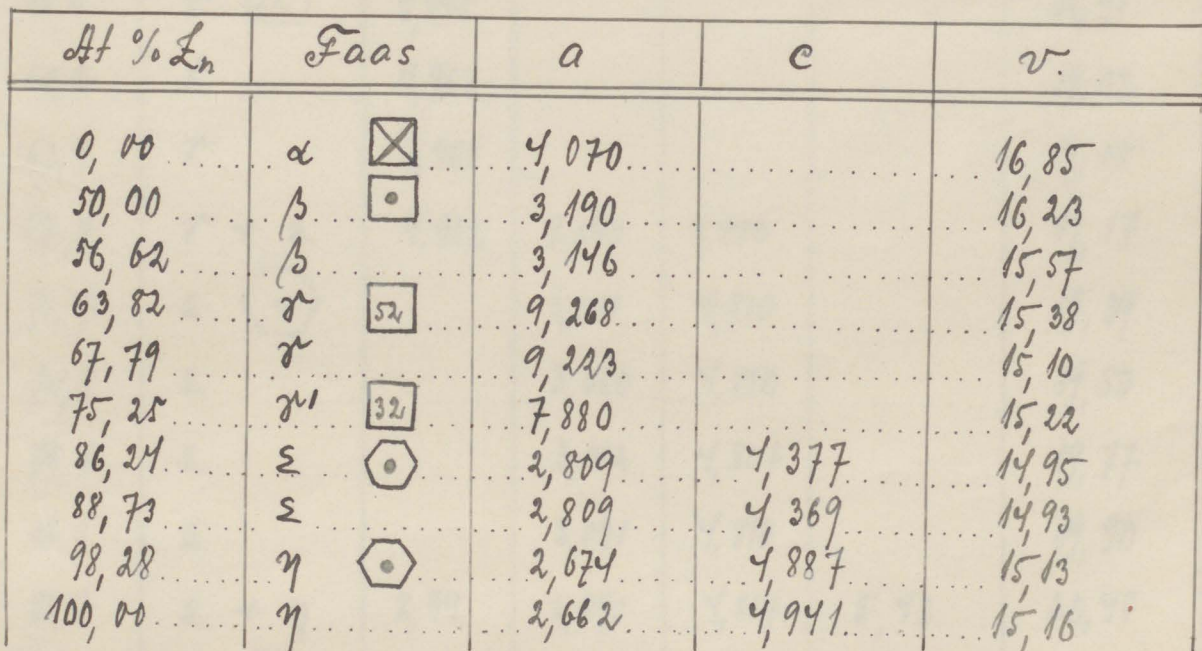 At % Zn Faas a c v.
0,00 α 4,070 16,85
50,00 β 3,190 16,23
56,62 β 3,146 15,57
63,82 γ 52 9,268 15,38
67,79 γ 9,223 15,10
75,25 γ' 32 7,880 15,22
86,24 ε 2,809 4,377 14,95
88,73 ε 2,809 4,369 14,93
98,28 η 2,674 4,887 15,13
100,00 η 2,662 4,941 15,16